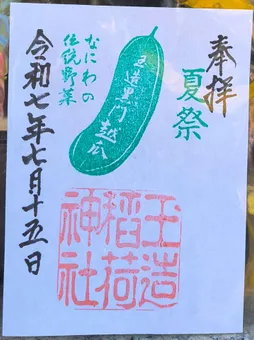 奉拝
夏祭
玉造黒門越瓜
なにわの
伝説野菜
令和七年七月十五日
玉造
稲荷
神社